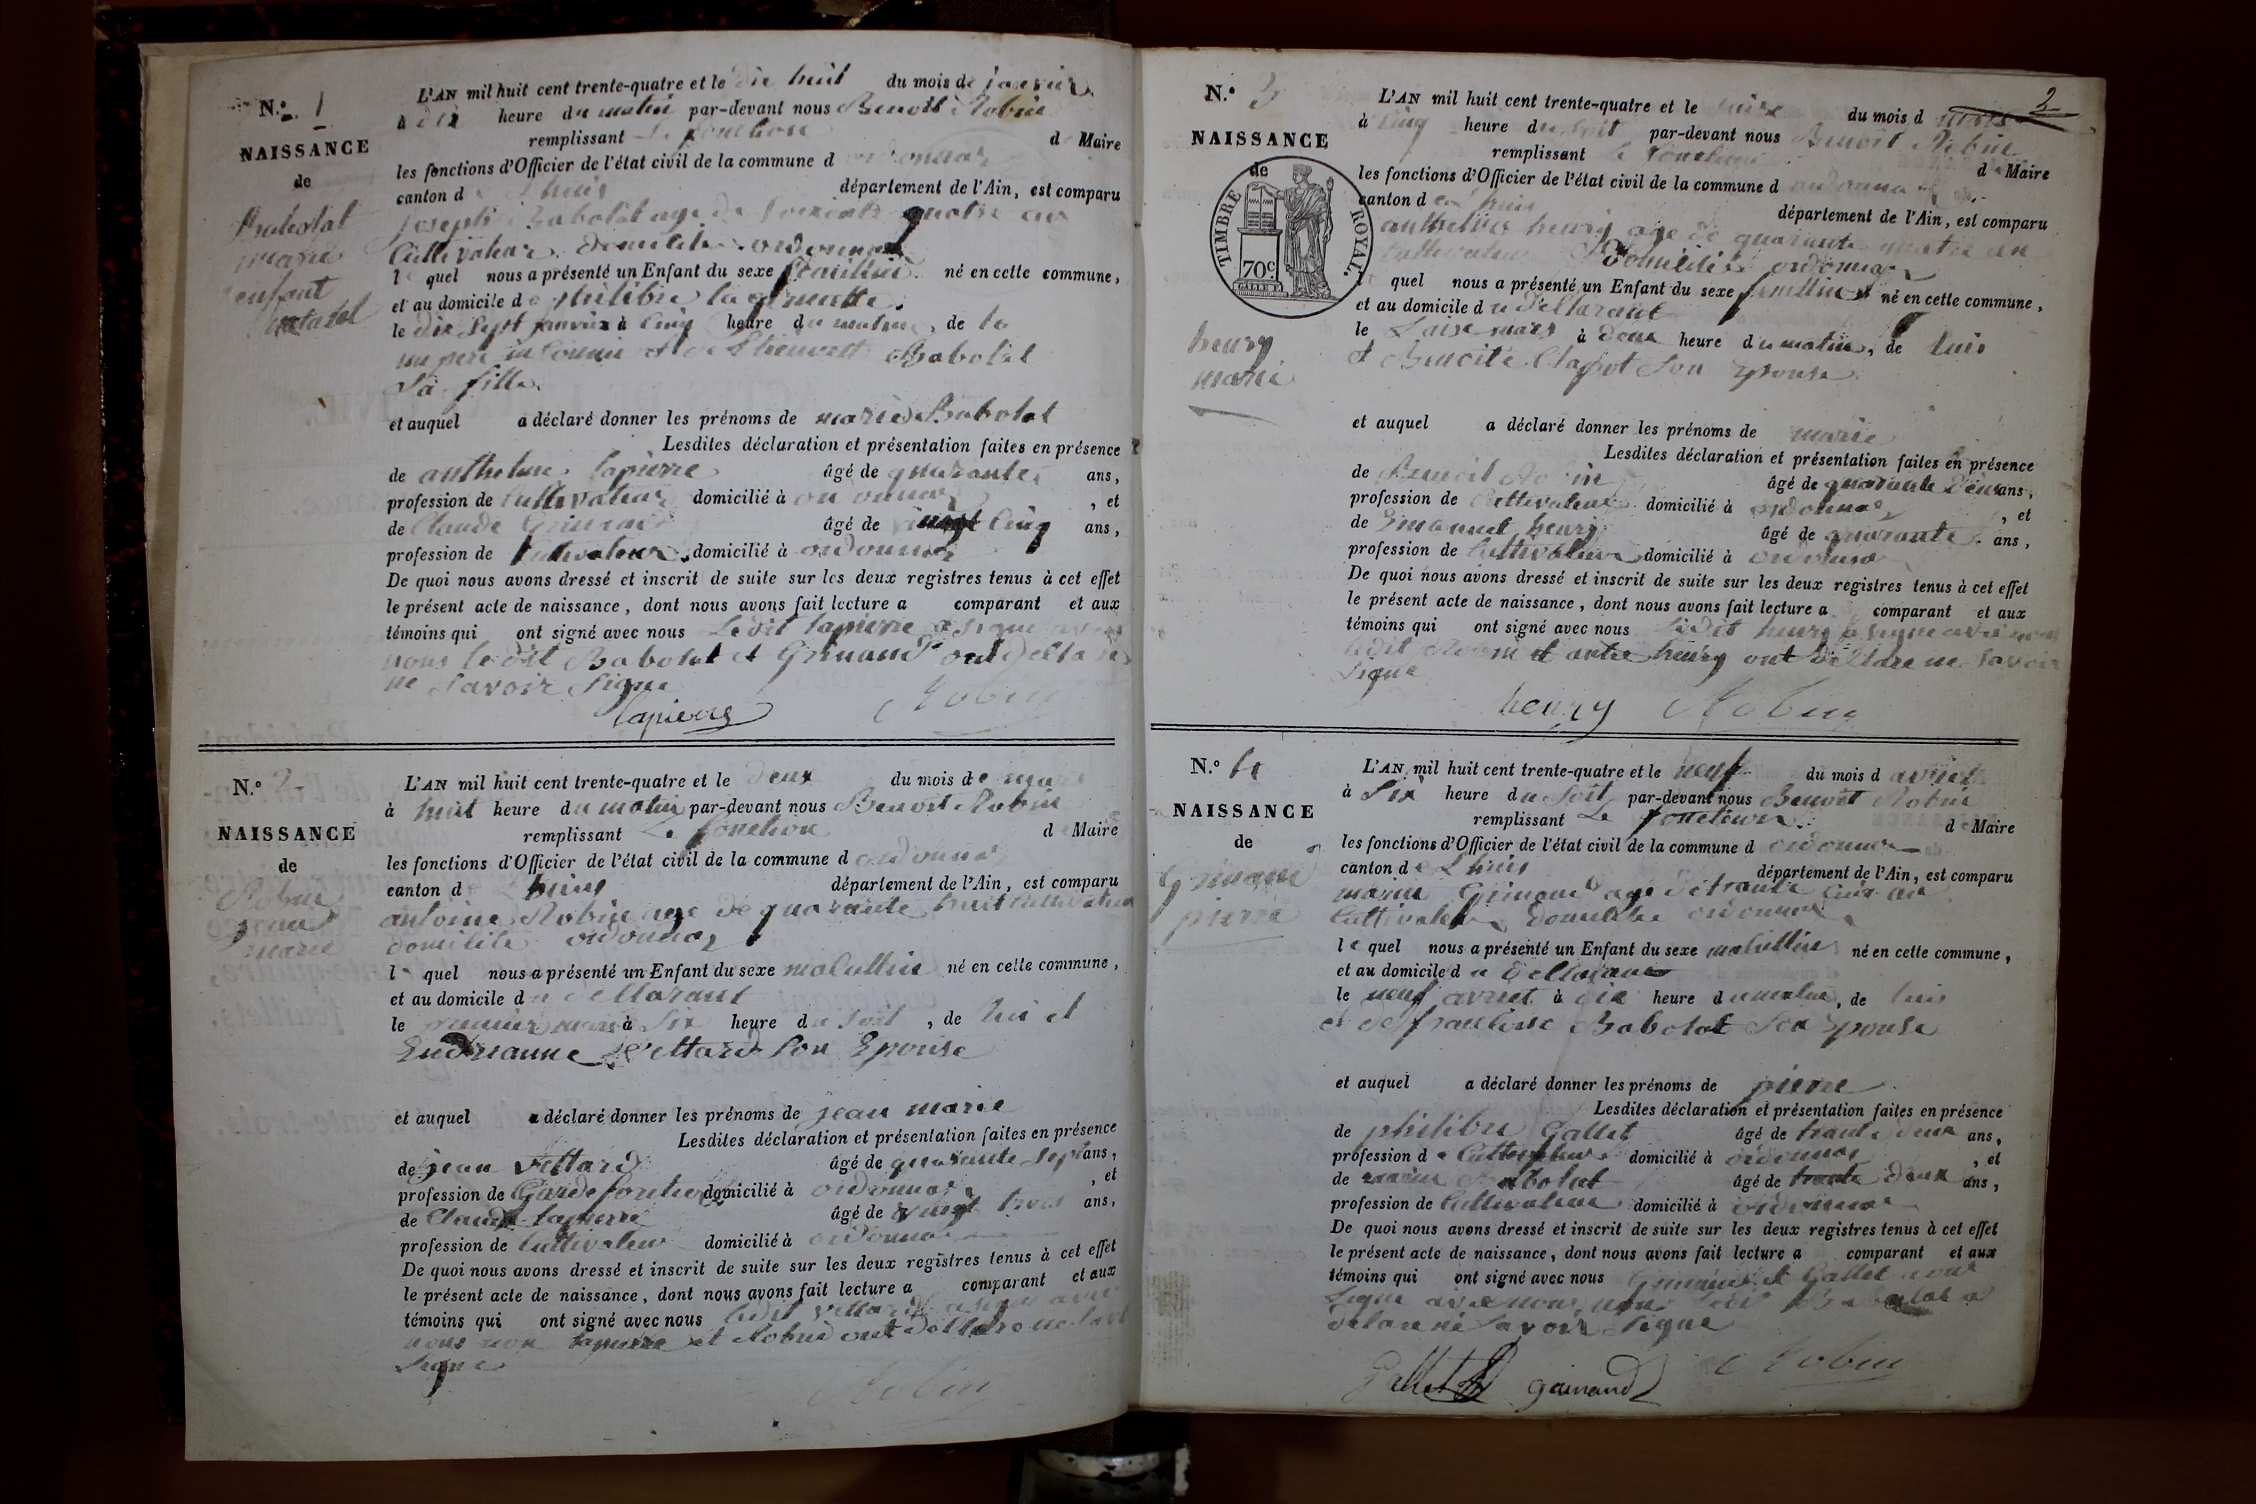 N.º 1
NAISSANCE
de
Babolat
marie
enfant
naturel
L'AN mil huit cent trente-quatre et le dix huit du mois de janvier
à dix heure du matin par-devant nous Benoit Robin
remplissant le fonction d Maire
les fonctions d'Officier de l'état civil de la commune d ordonnas
canton d Lhuis département de l'Ain, est comparu
joseph Babolat age de soixante quatre ans
Cultivateur domicilie ordonnas
le quel nous a présenté un Enfant du sexe né en cette commune,
et au domicile de philibre la
le dix sept janvier à cinq heure du matin, de
un pere inconnu et de Babolat
sa fille
et auquel a déclaré donner les prénoms de marie Babolat
Lesdites déclaration et présentation faites en présence
de anthelme lapierre âgé de quarante ans,
profession de Cultivateur domicilié à ordonnas, et
de Claude Grinand âgé de vingt cinq ans,
profession de Cultivateur domicilié à ordonnas
De quoi nous avons dressé et inscrit de suite sur les deux registres tenus à cet effet
le présent acte de naissance, dont nous avons fait lecture a comparant et aux
témoins qui ont signé avec nous Ledit lapierre a signe avec
nous le dit Babolat et Grinand ont dellare
ne savoir signe
lapierre Robin
N.º 2
NAISSANCE
de
Robin
jean
marie
L'AN mil huit cent trente-quatre et le deux du mois de mars
à huit heure du matin par-devant nous Benoit Robin
remplissant Le fonction d Maire
les fonctions d'Officier de l'état civil de la commune d ordonnas
canton d Lhuis département de l'Ain, est comparu
antoine Robin age de quarante huit Cultivateur
domicilie ordonnas
l quel nous a présenté un Enfant du sexe masculin né en cette commune,
et au domicile du dellarant
le premier mars à six heure du soir, de lui et
Vettard son Epouse
et auquel a déclaré donner les prénoms de jean marie
Lesdites déclaration et présentation faites en présence
de jean Vettard âgé de quarante sept ans,
profession de Garde forestier domicilié à ordonnas, et
de Claude lapierre âgé de vingt trois ans,
profession de Cultivateur domicilié à ordonnas
De quoi nous avons dressé et inscrit de suite sur les deux registres tenus à cet effet
le présent acte de naissance, dont nous avons fait lecture a comparant et aux
témoins qui ont signé avec nous ledit Vettard a signe avec
nous non lapierre et Robin ont dellare ne savoir
signe
Robin
2
N.º 3
NAISSANCE
de
TIMBRE ROYAL.
70c.
henry
marie
L'AN mil huit cent trente-quatre et le du mois d mars
à cinq heure du soir par-devant nous Benoit Robin
remplissant le fonction d Maire
les fonctions d'Officier de l'état civil de la commune d ordonnas
canton de Lhuis département de l'Ain, est comparu
anthelme henry age de quarante quatre an
Cultivateur Domicilie ordonnas
quel nous a présenté un Enfant du sexe né en cette commune,
et au domicile du dellarant
le mars à deux heure du matin, de luis
et Benoite Clapot son Epouse
et auquel a déclaré donner les prénoms de marie
Lesdites déclaration et présentation faites en présence
de Benoit Robin âgé de quarante deux ans,
profession de Cultivateur domicilié à ordonnas, et
de Emanuel henry âgé de quarante ans,
profession de Cultivateur domicilié à ordonnas
De quoi nous avons dressé et inscrit de suite sur les deux registres tenus à cet effet
le présent acte de naissance, dont nous avons fait lecture a comparant et aux
témoins qui ont signé avec nous Ledit henry a signe avec nous
ledit Robin et autre henry ont dellare ne savoir
signe
henry Robin
N.º 4
NAISSANCE
de
Grinand
pierre
L'AN mil huit cent trente-quatre et le neuf du mois d avriel
à six heure du soir par-devant nous Benoit Robin
remplissant Le fonction d Maire
les fonctions d'Officier de l'état civil de la commune d ordonnas
canton de Lhuis département de l'Ain, est comparu
marin Grinand age de trante cinq an
Cultivateur domicilie ordonnas
le quel nous a présenté un Enfant du sexe masculin né en cette commune,
et au domicile du dellarant
le neuf avriel à dix heure du matin, de luis
et de franсoise Babolat son Epouse
et auquel a déclaré donner les prénoms de pierre
Lesdites déclaration et présentation faites en présence
de philibre Gallet âgé de trante deux ans,
profession de Cultivateur domicilié à ordonnas, et
de marin Babolat âgé de trante deux ans,
profession de Cultivateur domicilié à ordonnas
De quoi nous avons dressé et inscrit de suite sur les deux registres tenus à cet effet
le présent acte de naissance, dont nous avons fait lecture a comparant et aux
témoins qui ont signé avec nous Grinand et Gallet ont
signe avec nous, non ledit Babolat a
delare ne savoir signe
Gallet grinand Robin